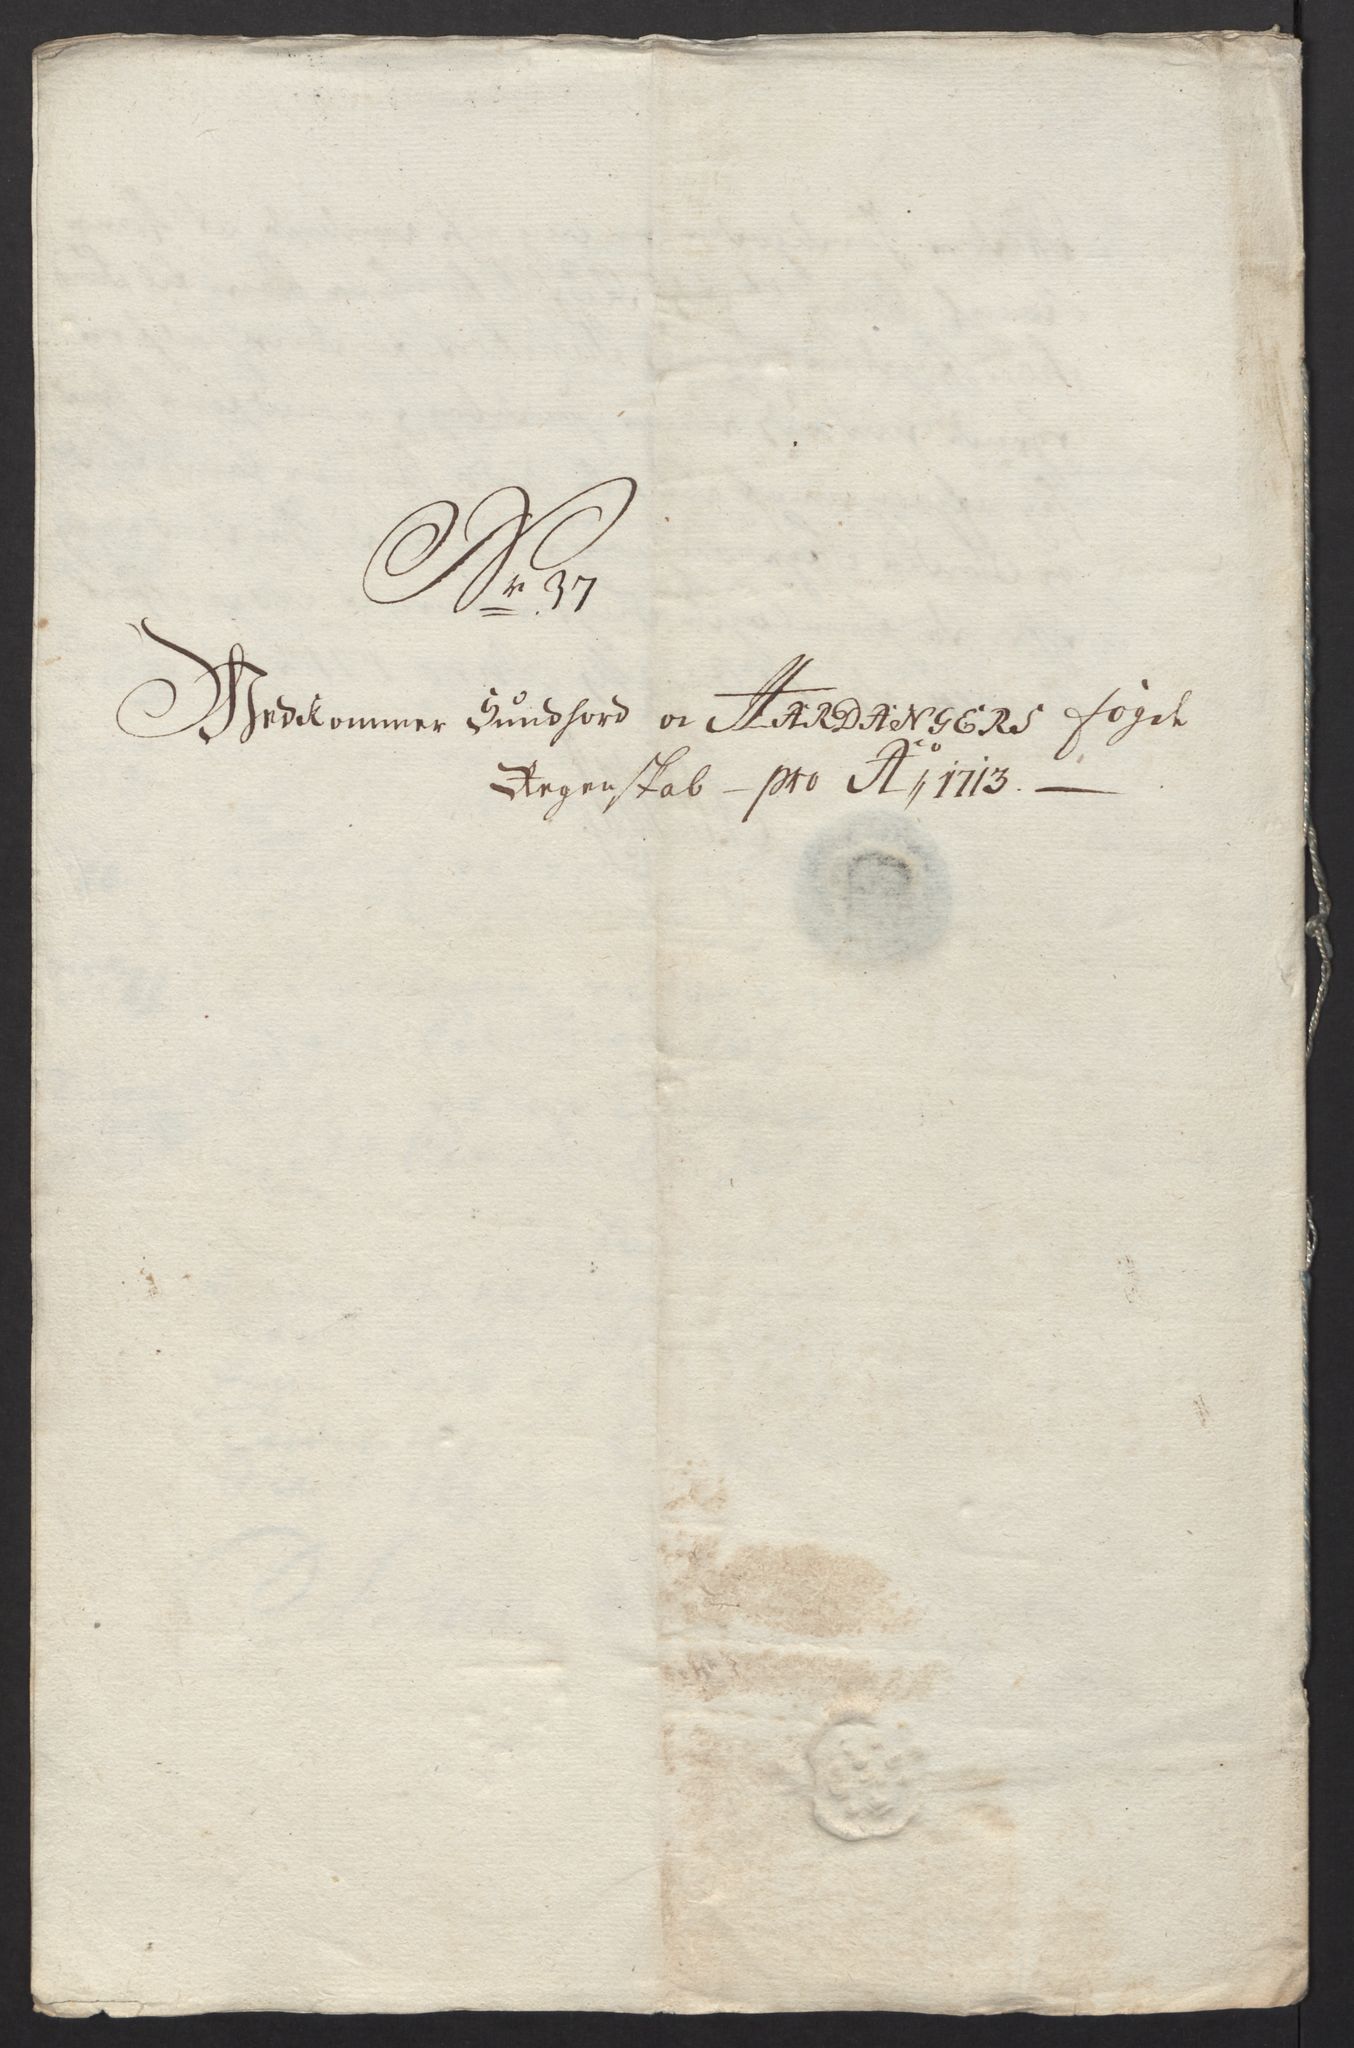 Nr. 37
Vedkommer Sundhord oc HARDANGERS fogde
Regenskab – pro Ao 1713. —